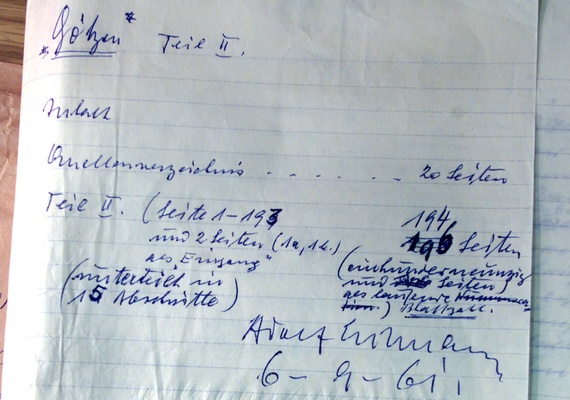 "Götzen" Teil II.
Inhalt
Quellenverzeichnis . . . . . . 20 Seiten
Teil II. (Seite 1-193 194,
und 2 Seiten (1a, 1b.) Seiten
als "Eingang"
(unterteilt in (einhundertneunzig
15 Abschnitte) und Seiten)
als laufende
Blattzahl.
Adolf Eichmann
6-9-61.